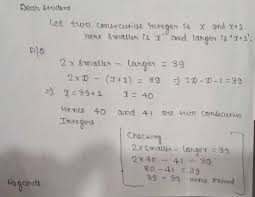 Dear Student
Let two consecutive Integer is x and x+1.
Here smaller is 'x' and larger is 'x+1'.
A/Q
2 x smaller - larger = 39
2xx - (x+1) = 39 => 2x-x-1=39
=> x=39+1 x = 40
Hence 40 and 41 are two consecutive
Integers
Checking
2xsmaller - larger = 39
2x40 - 41 = 39
80 - 41 = 39
39 = 39 Hence Proved
Regards